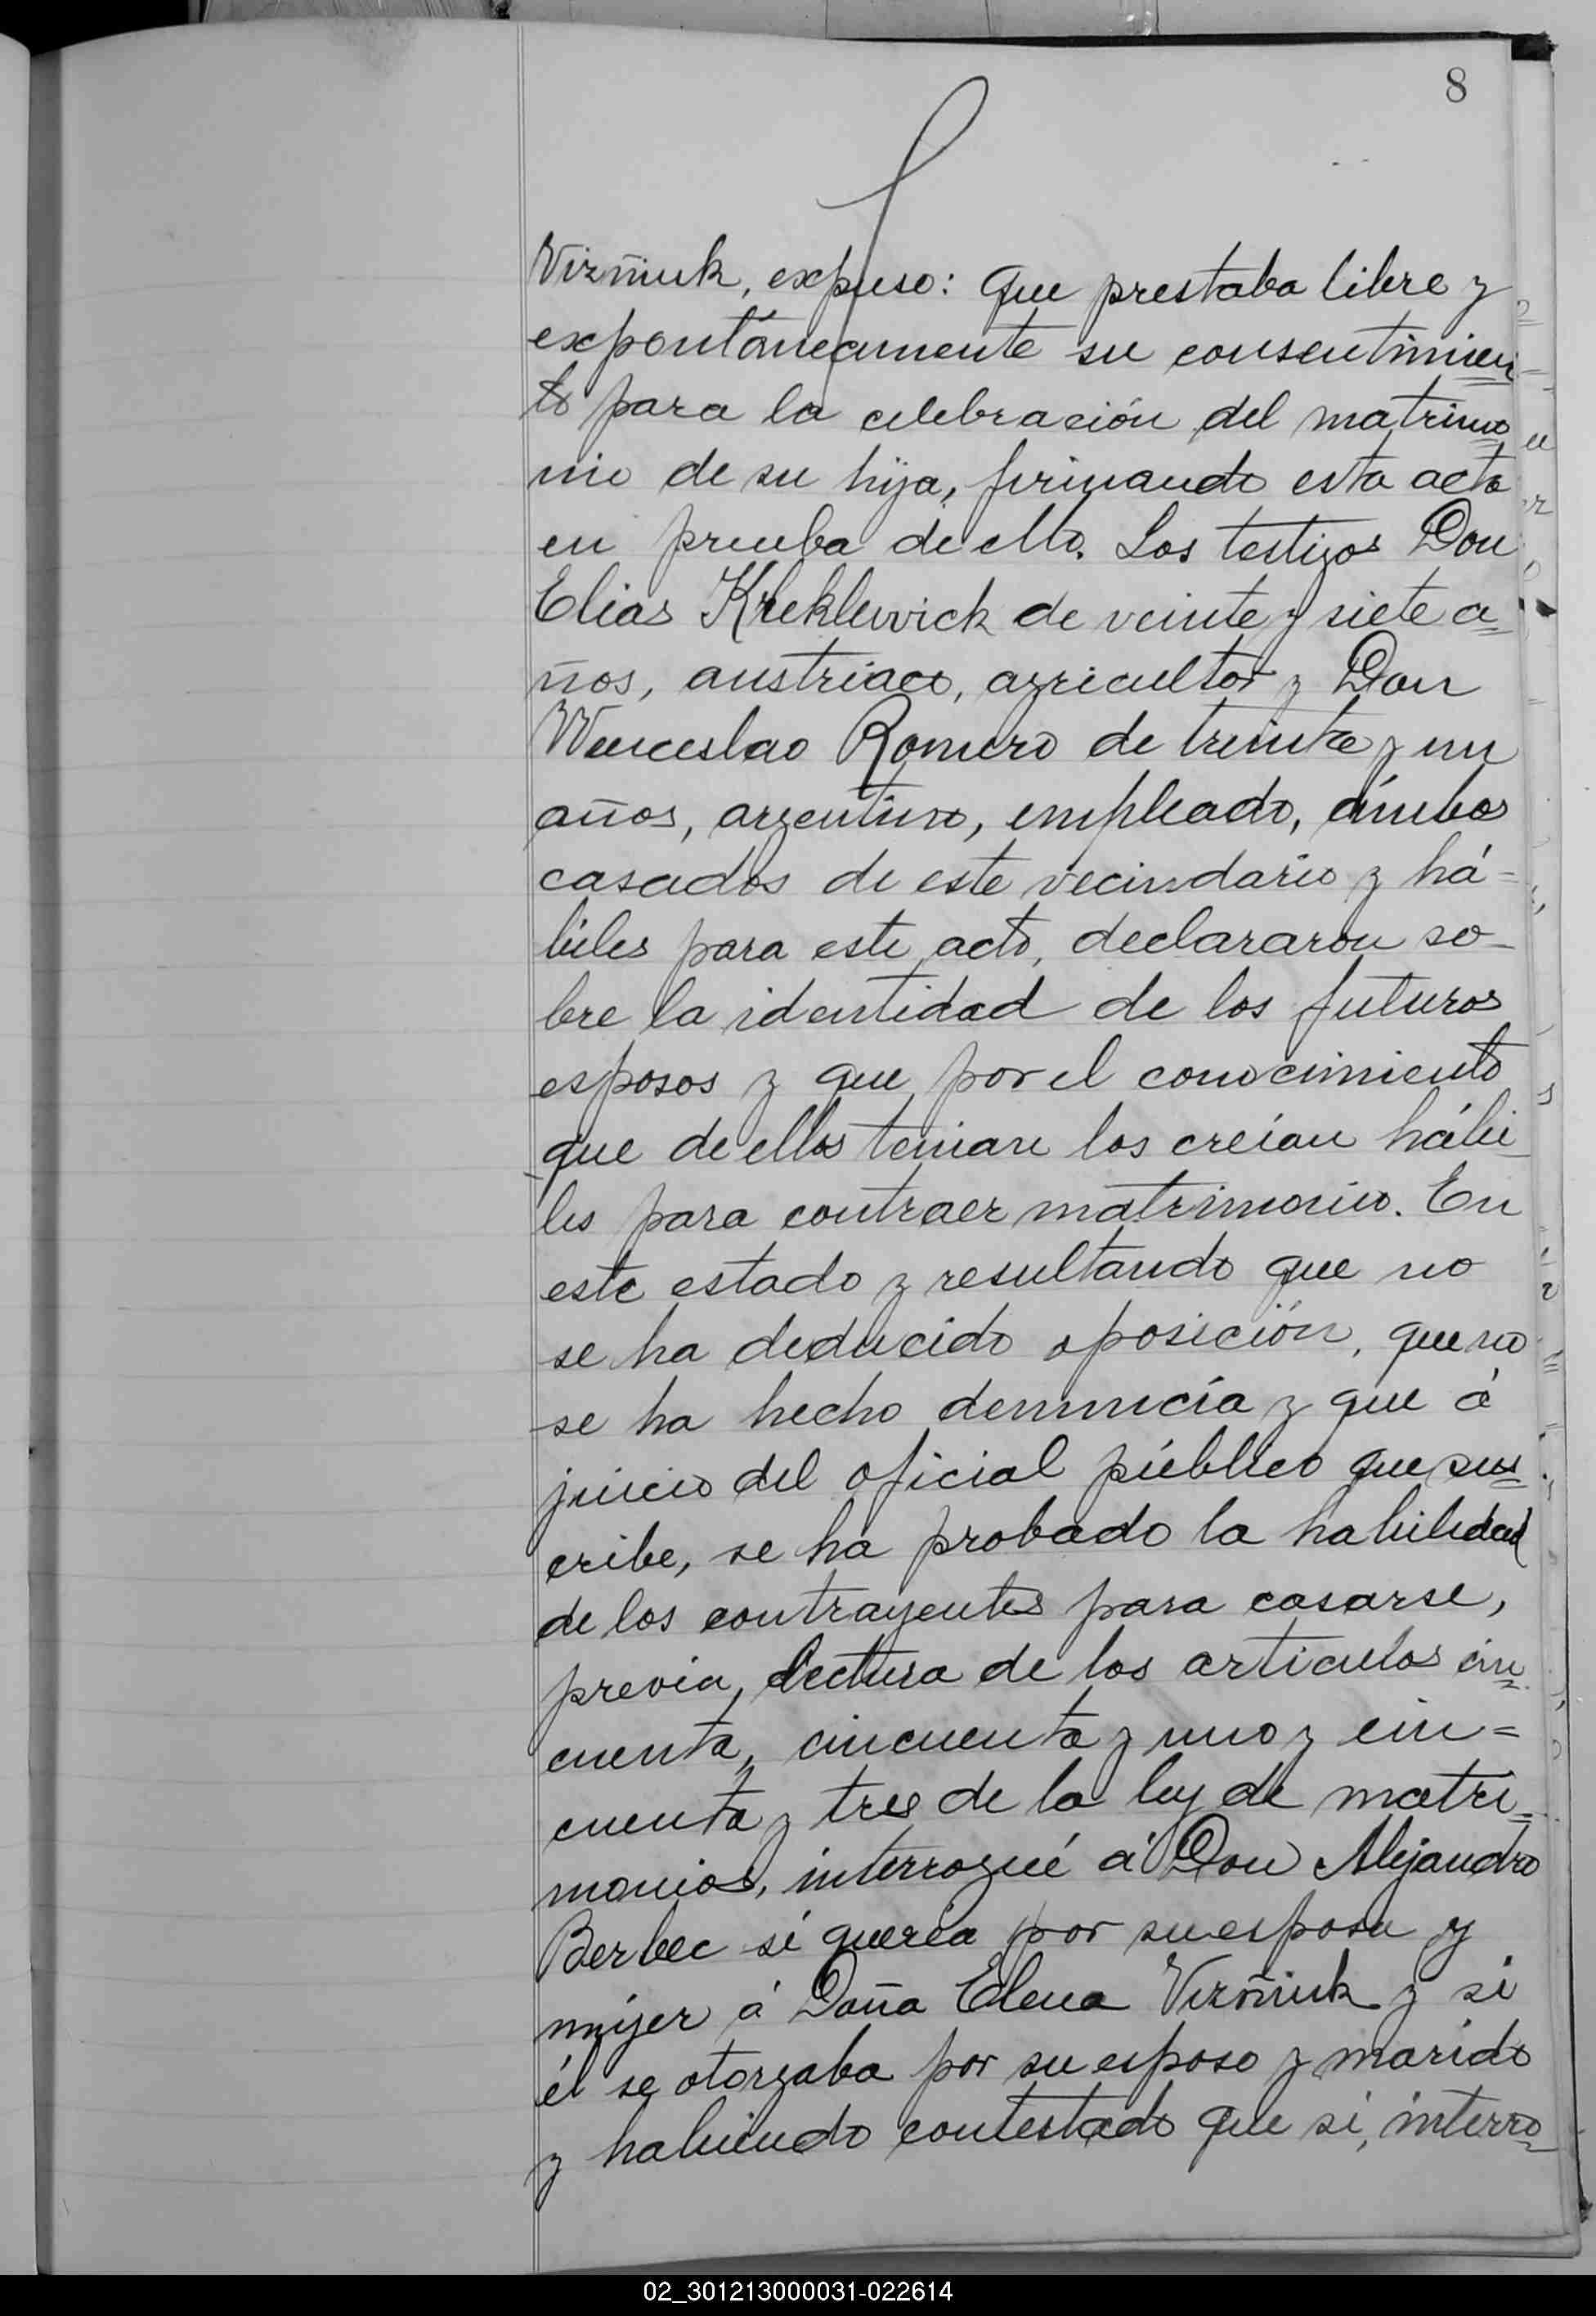 8
Vizñiuk, expuso: que prestaba libre y
expontáneamente su consentimien
to para la celebración del matrimo
nio de su hija, firmando esta acta
en prueba de ello. Los testigos Don
Elias Kreklewick de veinte y siete a=
ños, austriaco, agricultor y Don
Wenceslao Romero de treinta y un
años, argentino, empleado, ámbos
casados de este vecindario y há=
biles para este acto, declararon so-
bre la identidad de los futuros
esposos y que por el conocimiento
que de ellos tenian los creían hábi
les para contraer matrimonio. En
este estado y resultando que no
se ha deducido oposición, que no
se ha hecho denuncia y que á
juicio del oficial público que sus=
cribe, se ha probado la habilidad
de los contrayentes para casarse,
previa, lectura de los articulos cin
cuenta, cincuenta y uno y cin=
cuenta y tres de la ley de matri=
monios, interrogué á Don Alejandro
Berbec si quería por su esposa y
mujer á Doña Elena Vizñiuk y si
él se otorgaba por su esposo y marido
y habiendo contestado que si, interro=
02_301213000031-022614